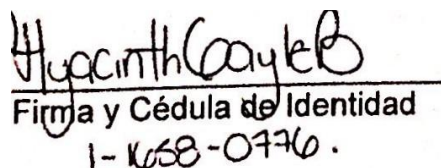 Hyacinth Gayle B
Firma y Cédula de Identidad
1-1658-0776.